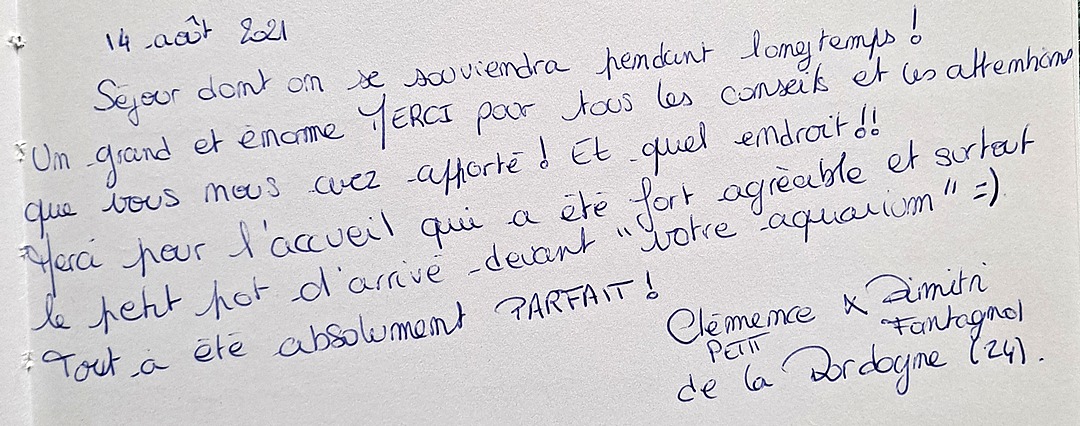 14 août 2021
Séjour dont on se souviendra pendant longtemps !
Un grand et énorme MERCI pour tous les conseils et les attentions
que vous nous avez apporté ! Et quel endroit !!
Merci pour l'accueil qui a été fort agréable et surtout
le petit pot d'arrivé devant "votre aquarium" =).
Tout a été absolument PARFAIT !
Clémence & Dimitri
PETIT Fantagnol
de la Dordogne (24).